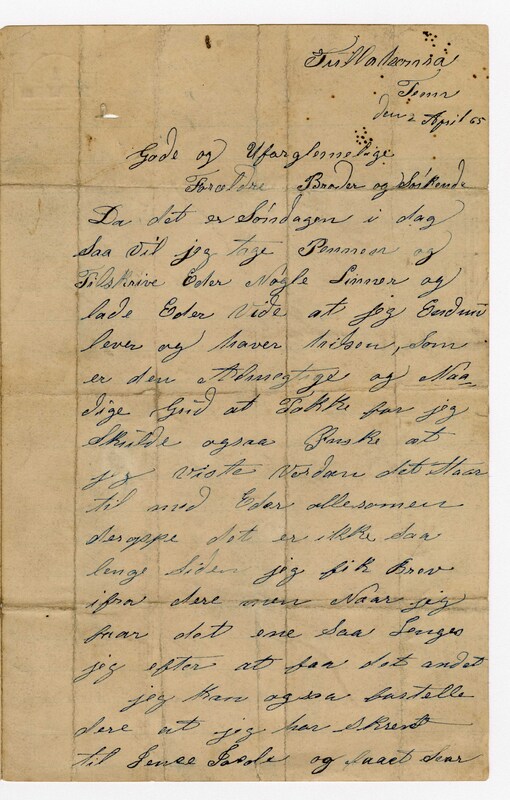 Tullahomsa
Tenn
den 2 April 65
Gode og Uforglemelige
Forældre Brøder og Søskende
Da det er Søndagen i dag
saa vil jeg tage Pennen og
Tilskrive Eder Nogle Linner og
lade Eder vide at jeg Endnu
lever og haver helsen, som
er den Almegtige og Naa
dige Gud at Takke for jeg
skulde ogsaa Ønske at
jeg viste Verdan det staar
til med Eder allesomen
deroppe det er ikke saa
lenge siden jeg fik Brev
ifra dere men Naar jeg
faar det ene saa Lenges
jeg efter at faa det andet
jeg kan ogsa fortelle
dere at jeg har skrevet
til og faaet svar